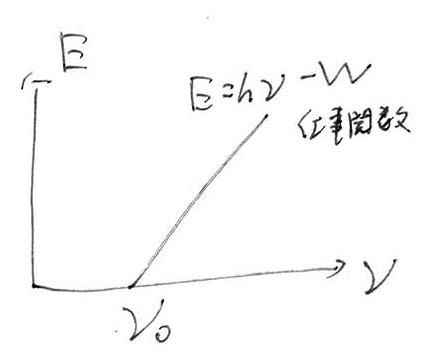 E
E=hν-W
仕事関数
ν
ν₀